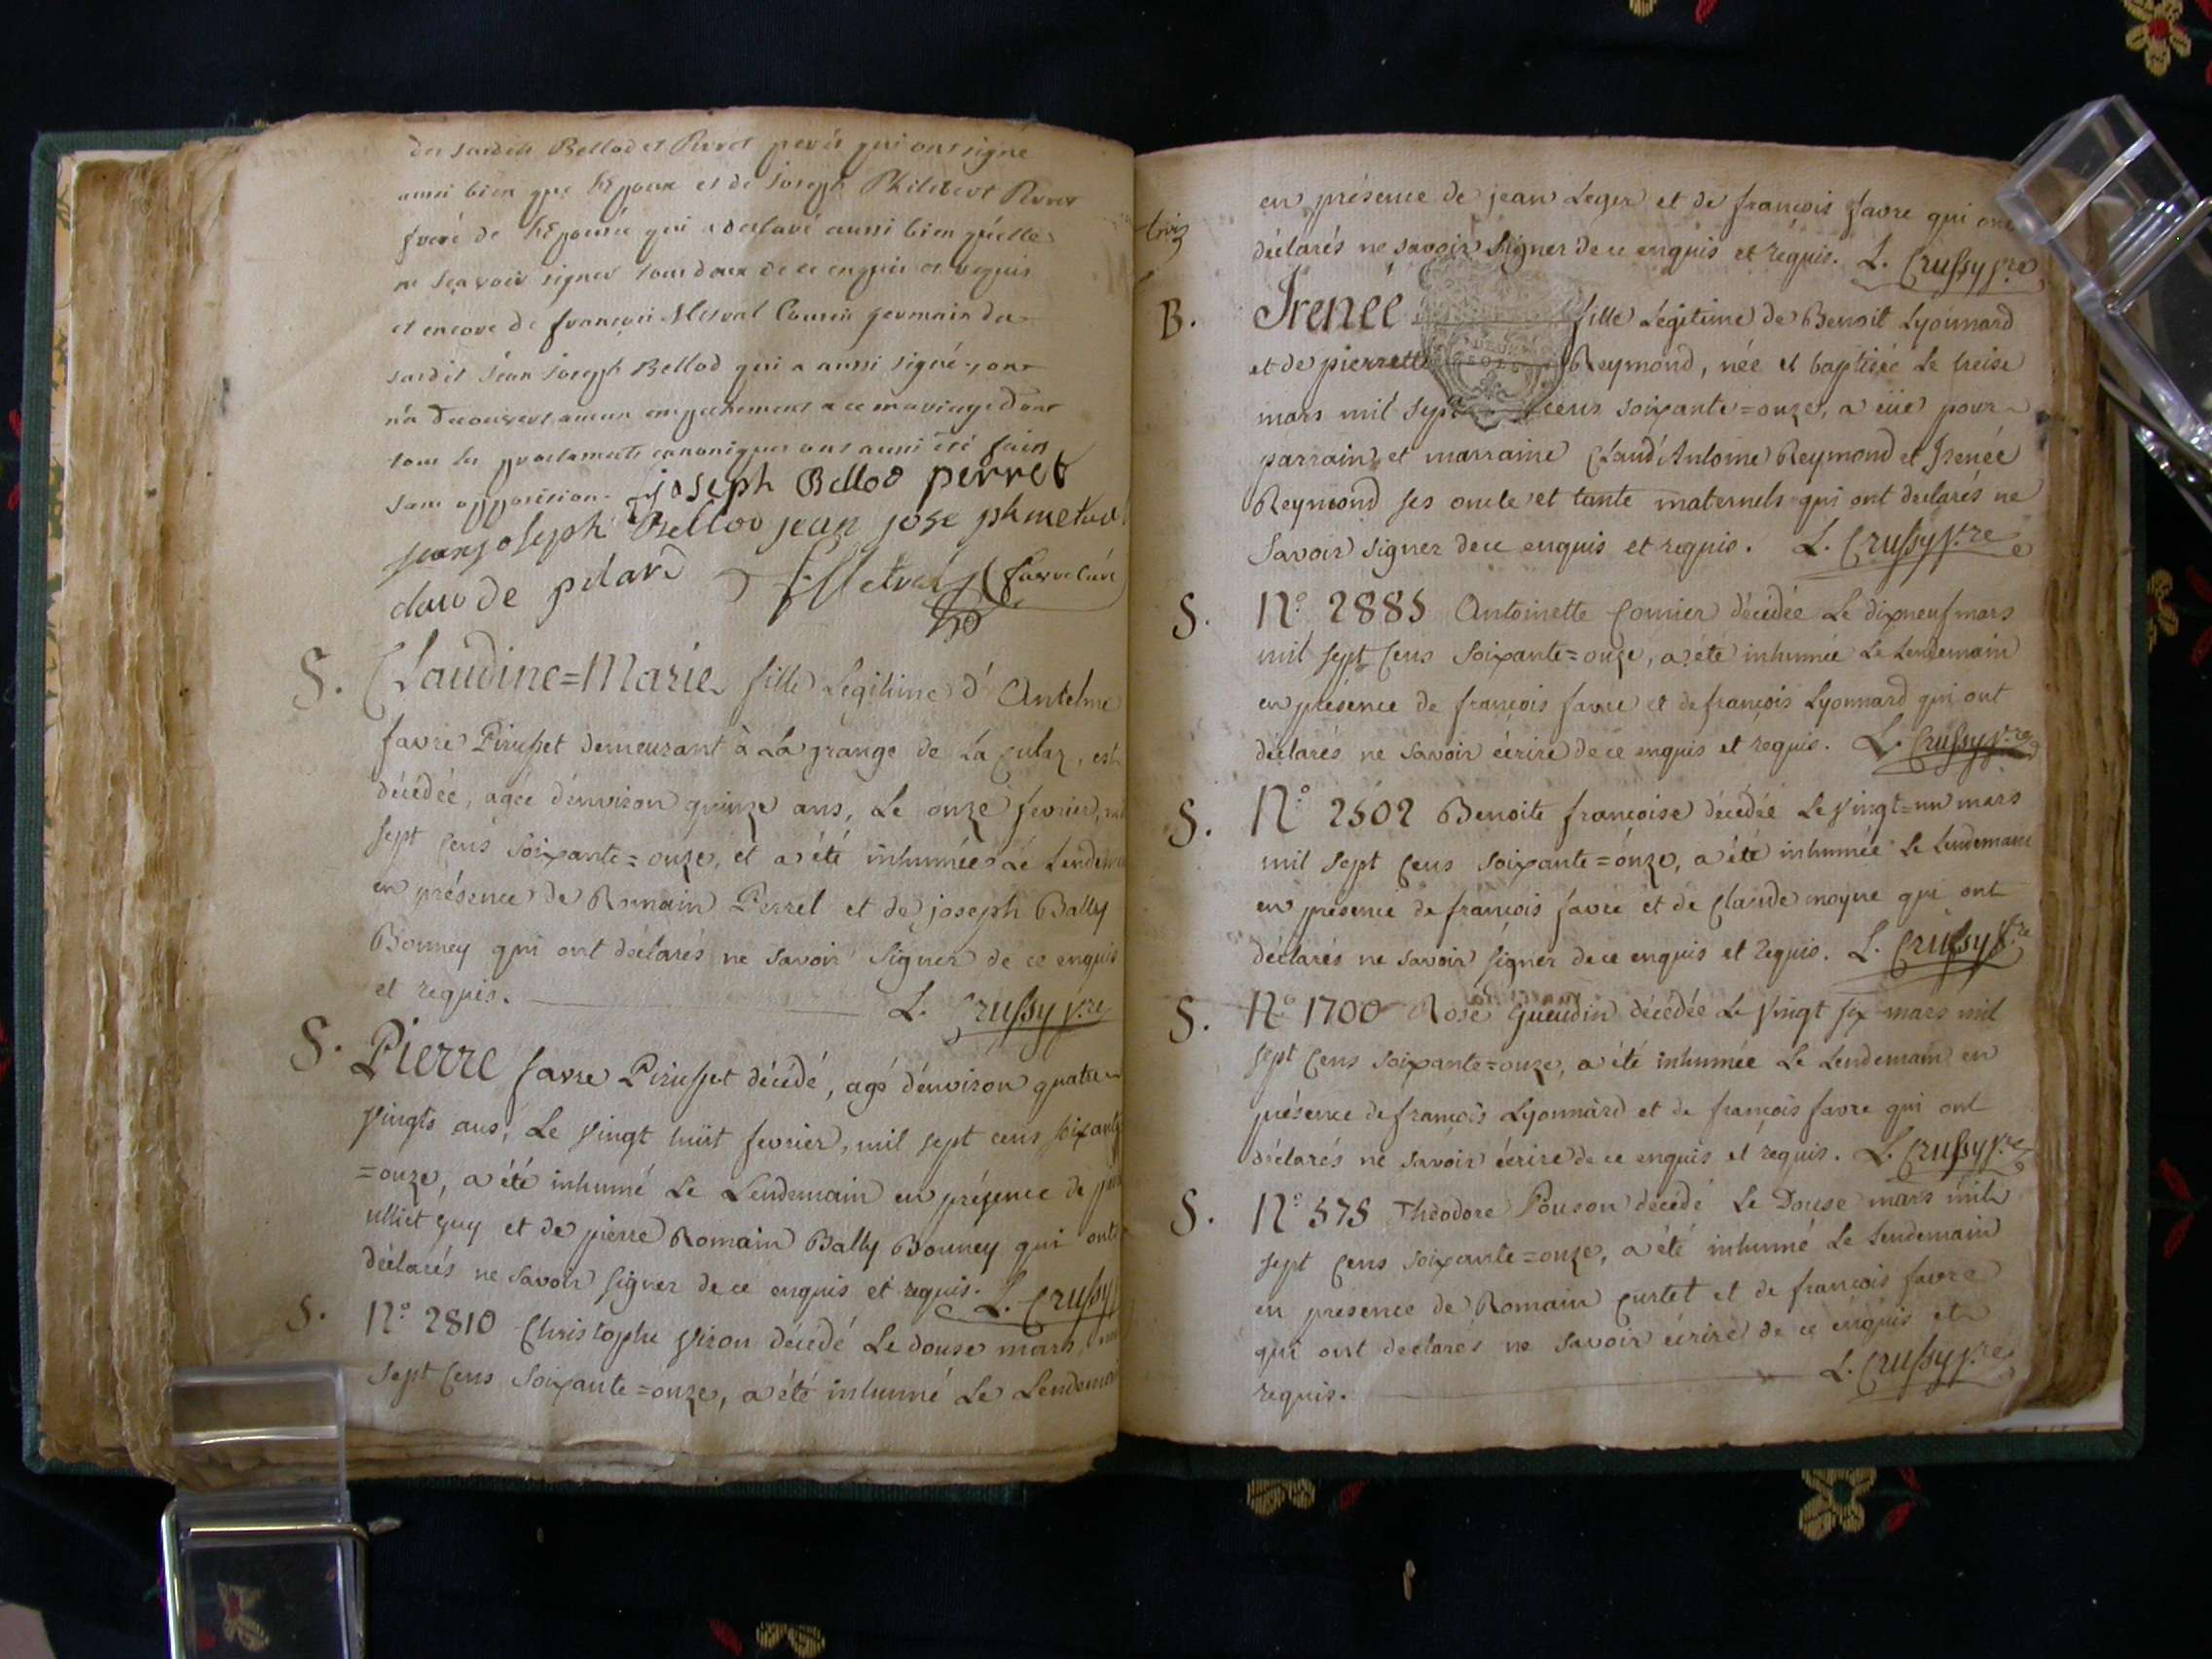 des susdits Bellod et Perret peres qui ont signé
aussi bien que l'Epoux et de Joseph Philibert Perret
frere de l'Epouse qui a declaré aussi bien qu'elle
ne sçavoir signer tous deux de ce enquis et requis
et encore de françois Metral Cousin germain du
susdit Jean Joseph Bellod qui a aussi signé, on
n'a decouvert aucun empechement a ce mariage dont
tous les proclamats canoniques ont aussi été faits
sans opposition. joseph Bellod perret
jean joseph Bellod jean josephe metral
claude pilard f Metral favre curé
S. Claudine=Marie fille Legitime d'Antelme
favre Pirusset demeurant à La grange de La Cular, est
décédée, agée d'environ quinze ans, Le onze fevrier, mil
sept cens soixante=onze, et a été inhumée Le Lendemain
en présence de Romain Perret et de joseph Bally
Bonney qui ont déclarés ne savoir signer de ce enquis
et requis. L. Crussy p.re
S. Pierre favre Pirusset décédé, agé d'environ quatre
vingts ans, Le vingt huit fevrier, mil sept cens soixante
=onze, a été inhumé Le Lendemain en présence de
ulliet guy et de pierre Romain Bally Bonney qui ont
déclarés ne savoir signer de ce enquis et requis. L. Crussy
S. N.o 2810 Christophe Viron décédé Le douse mars, mil
sept cens soixante=onze, a été inhumé Le Lendemain
en présence de jean Leger et de françois favre qui ont
déclarés ne savoir signer de ce enquis et requis. L. Crussy p.re
B. Irenée fille Légitime de Benoit Lyonnard
et de pierrette Reymond, née et baptisée Le treise
mars mil sept cens soixante=onze, a eüe pour
parrain et marraine Claud'Antoine Reymond et Irenée
Reymond ses oncle et tante maternels qui ont declarés ne
savoir signer de ce enquis et requis. L. Crussy p.re
S. N.o 2885 Antoinette Cornier décédée Le dixneuf mars
mil sept cens soixante=onze, a été inhumée Le Lendemain
en présence de françois favre et de françois Lyonnard qui ont
déclarés ne savoir écrire de ce enquis et requis. L. Crussy p.re
S. N.o 2502 Benoite françoise décédée Le vingt=un mars
mil sept cens soixante=onze, a été inhumée Le Lendemain
en présence de françois favre et de Claude moyne qui ont
déclarés ne savoir signer de ce enquis et requis. L. Crussy p.re
S. N.o 1700 Rose Gueudin décédée Le vingt six mars mil
sept cens soixante=onze, a été inhumée Le Lendemain en
présence de françois Lyonnard et de françois favre qui ont
déclarés ne savoir écrire de ce enquis et requis. L. Crussy p.re
S. N.o 575 Théodore Pouson décédé Le Douse mars mil
sept cens soixante=onze, a été inhumé Le Lendemain
en présence de Romain Curtet et de françois favre
qui ont declarés ne savoir écrire de ce enquis et
requis. L. Crussy p.re